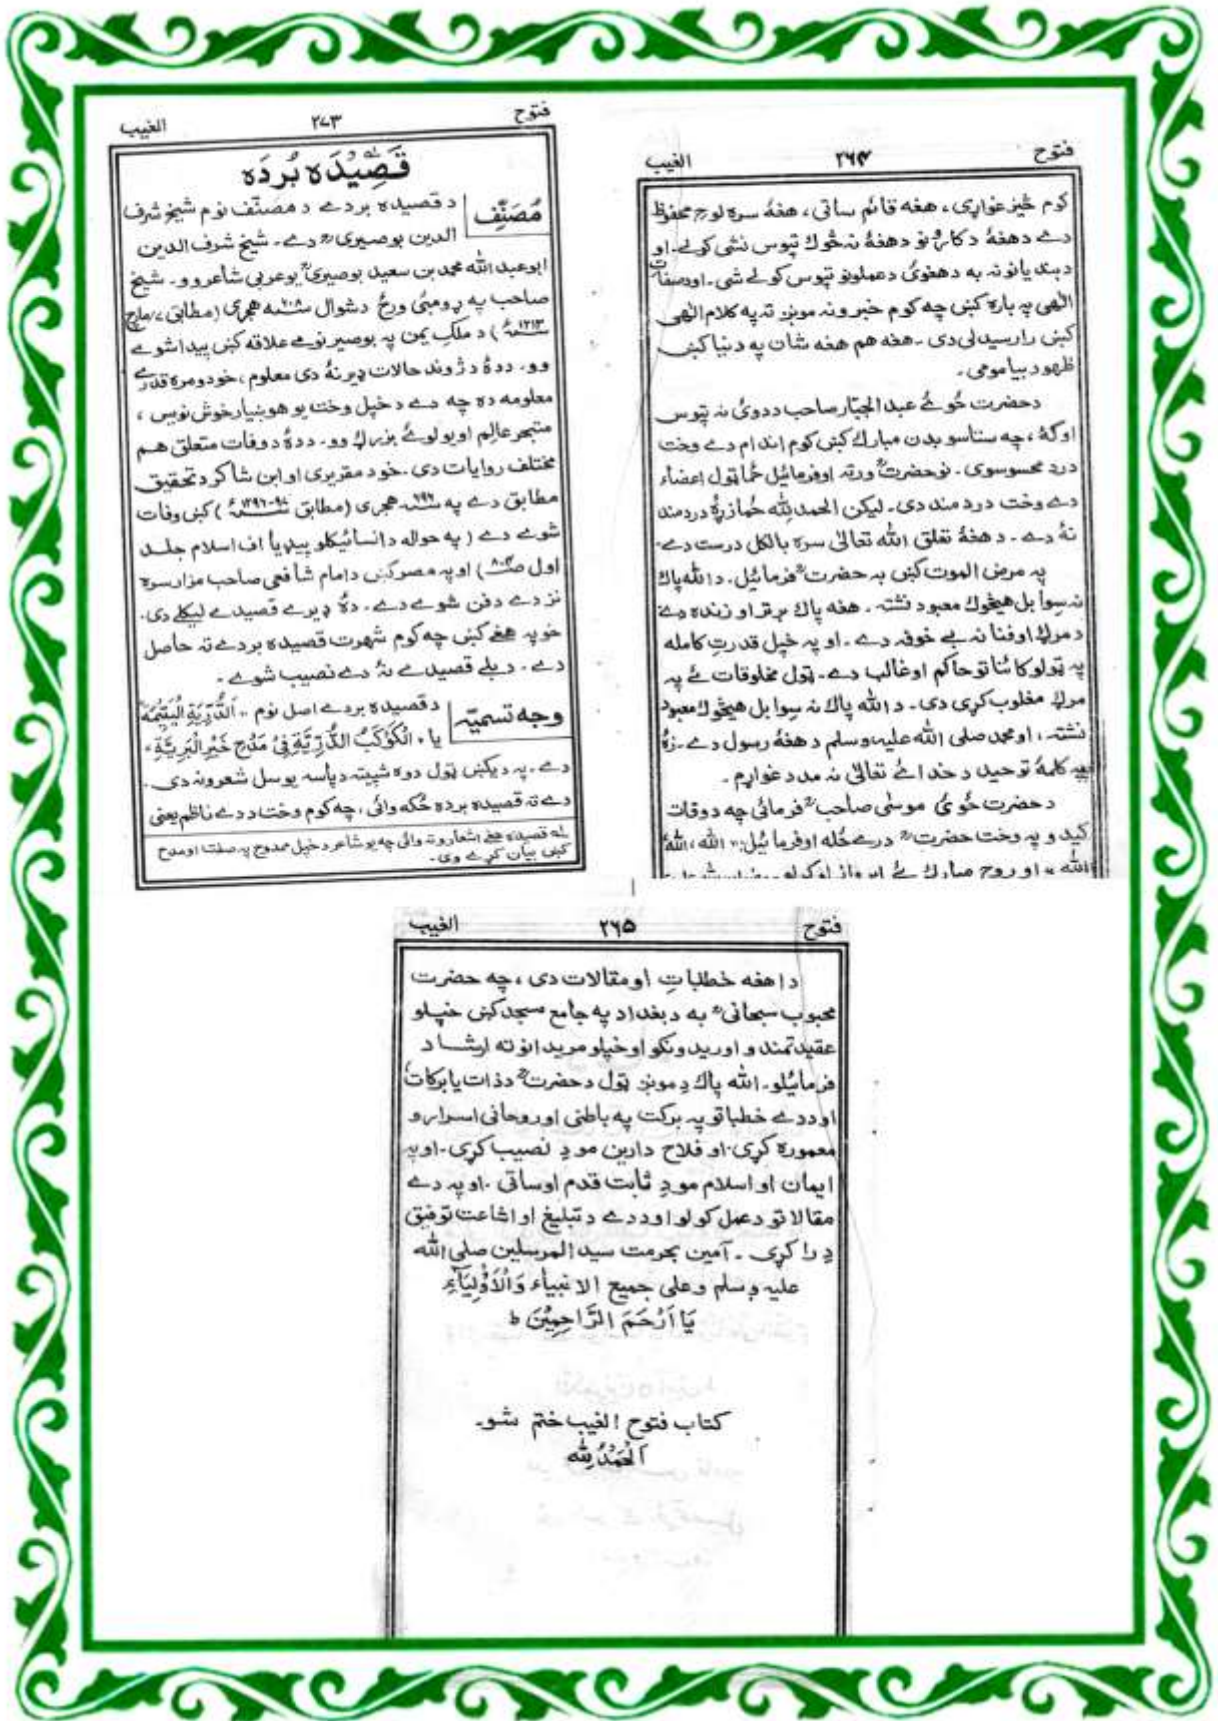 فتوح ۲۶۴ الغیب
کوم څیز غواړی، هغه قائم ساتی، هغهٔ سره لوح محفوظ
دے دهغهٔ د کارو نو دهغهٔ نه څوك تپوس نشی کولے. او
د بندیانو نه به دهغوئ دعملونو تپوس کولے شی. او د صفات
الٰهی په باره کښ چه کوم خبرونه مونږ ته په کلام الٰهی
کښ رارسیدلی دی. هغه هم هغه شان په دنیا کښ
ظهور بیا مومی.
دحضرت ځوئے عبدالجبار صاحب ددوئ نه تپوس
اوکهٔ، چه ستاسو بدن مبارك کښ کوم اندام دے وخت
درد محسوسوی. نو حضرتؒ ورته اوفرمائیل ځما ټول اعضاء
دے وخت درد مند دی. لیکن الحمد لله ځما زړهٔ درد مند
نهٔ دے. د هغهٔ تعلق الله تعالٰی سره بالکل درست دے.
په مرض الموت کښ به حضرتؒ فرمائیل. د الله پاك
نه سوا بل هیڅوك معبود نشته. هغه پاك برتر او زنده دے
د مرګ او فنا نه بے خوفه دے. او په خپل قدرتِ کامله
په ټولو کائناتو حاکم او غالب دے. ټول مخلوقات ئے په
مرګ مغلوب کړی دی. د الله پاك نه سوا بل هیڅوك معبود
نشته، او محمد صلی الله علیه وسلم د هغهٔ رسول دے. زهٔ
په کلمهٔ توحید د خدائے تعالٰی نه مدد غواړم.
دحضرت ځوئ موسٰی صاحبؒ فرمائی چه دوفات
کیدو په وخت حضرتؒ درے ځله اوفرمائیل: الله، اللهُ
الله، او روح مبارك ئے
فتوح ۲۷۳ الغیب
قَصِیْدَه بُردَه
مُصَنِّف د قصیده بردے د مصنّف نوم شیخ شرف
الدین بوصیریؒ دے. شیخ شرف الدین
ابوعبد الله محمد بن سعید بوصیریؒ یو عربی شاعر وو. شیخ
صاحب په ړومبئ ورځ د شوال ۶۰۸ سنه هجری (مطابق ۷ مارچ
۱۲۱۳ء) د ملك یمن په بوصیر نومے علاقه کښ پیدا شوے
وو. ددهٔ د ژوند حالات ډیر نهٔ دی معلوم، خو دومره قدرے
معلومه ده چه دے د خپل وخت یو هوښیار خوش نویس،
متبحر عالم او یو لوئے بزرګ وو. ددهٔ د وفات متعلق هم
مختلف روایات دی. خو د مقریزی او ابن شاکر د تحقیق
مطابق دے په ۶۹۶ سنه هجری (مطابق ۹۷-۱۲۹۶ء) کښ وفات
شوے دے (په حواله د انسائیکلو پیډیا اف اسلام جلد
اول ص۸۰۴) او په مصر کښ د امام شافعی صاحب مزار سره
نزدے دفن شوے دے. دهٔ ډیرے قصیدے لیکلے دی.
خو په هغے کښ چه کوم شهرت قصیده بردے ته حاصل
دے. د بلے قصیدے نهٔ دے نصیب شوے.
وجه تسمیّه د قصیده بردے اصل نوم "اَلدُّرِّیَةِ الْیَتِیْمَة"
یا "اَلْکَوْکَبُ الدُّرِّیَّةِ فِیْ مَدْحِ خَیْرِ الْبَرِیَّةِ"
دے. په دیکښ ټول دوه شپیته د پاسه یوسل شعرونه دی.
دے ته قصیده برده ځکه وائی، چه کوم وخت د دے ناظم یعنی
له قصیده هغے اشعارو ته وائی چه یو شاعر د خپل ممدوح په صفتا او مدح
کښ بیان کړے وی.
فتوح ۲۶۵ الغیب
دا هغه خطبات او مقالات دی، چه حضرت
محبوب سبحانیؒ به د بغداد په جامع مسجد کښ خپلو
عقیدتمندو اوریدونکو او خپلو مریدانو ته ارشاد
فرمائیلو. الله پاك دِ مونږ ټول د حضرتؒ د ذات بابرکات
او ددے خطباتو په برکت په باطنی او روحانی اسرارو
معموره کړی. او فلاح دارین مو دِ نصیب کړی. او په
ایمان او اسلام مو دِ ثابت قدم اوساتی. او په دے
مقالاتو د عمل کولو او ددے د تبلیغ او اشاعت توفیق
دِ را کړی. آمین بحرمت سید المرسلین صلی الله
علیه وسلم وعلی جمیع الانبیاء وَالْاَوْلِیَآءِ
یَا اَرْحَمَ الرَّاحِمِیْنَ ط
کتاب فتوح الغیب ختم شو.
اَلْحَمْدُ لِلّٰه